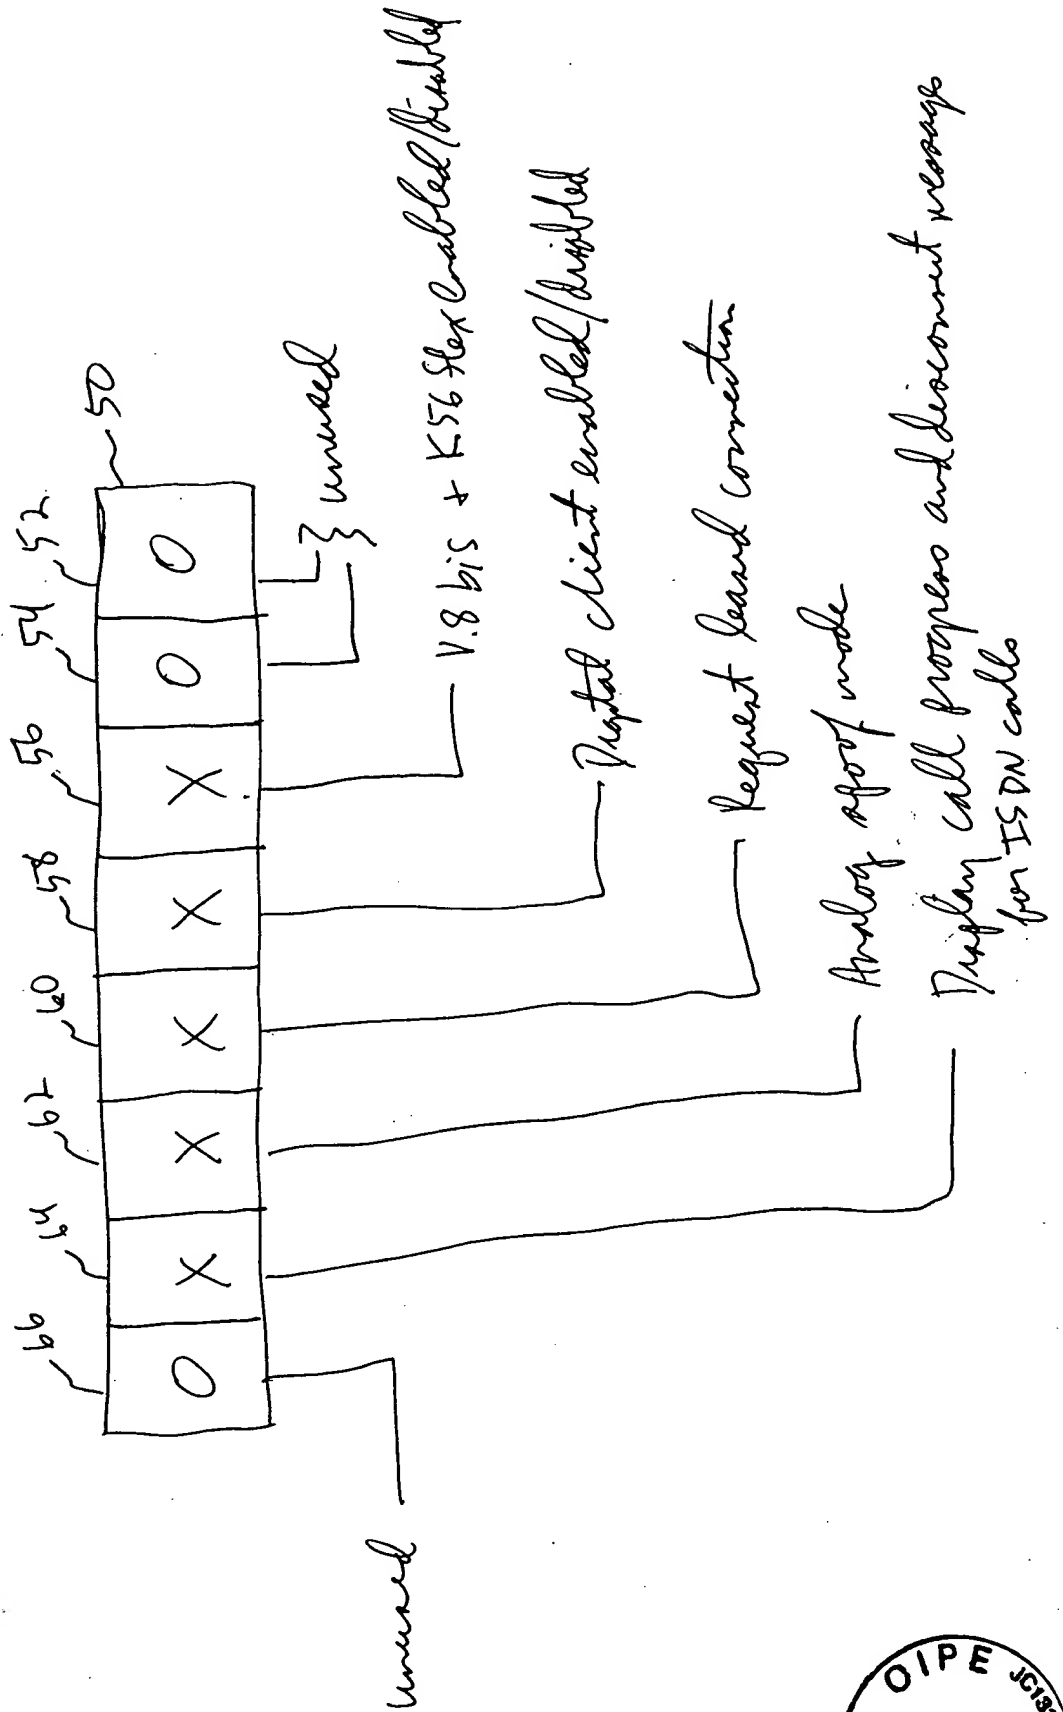 66 64 62 60 58 56 54 52
50
O X X X X X O O
unused
} unused
V.8 bis + K56 flex enabled/disabled
Digital client enabled/disabled
Request leased connection
Analog spoof mode
Display call progress and disconnect message
for ISDN calls
OIPE